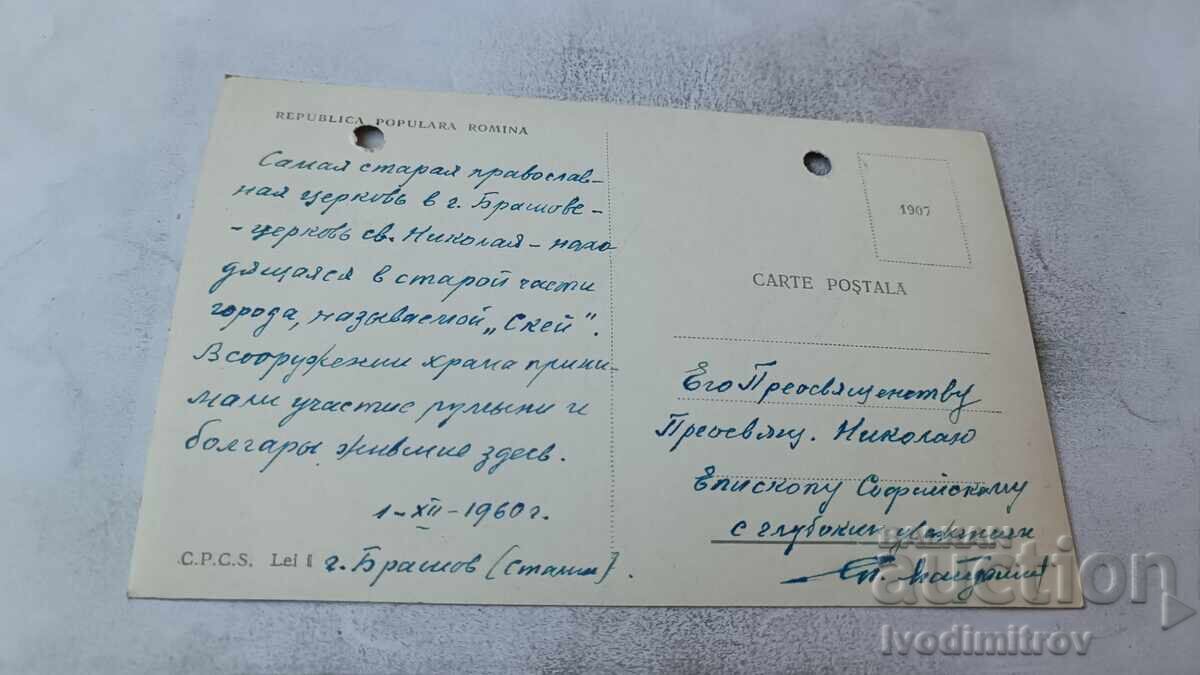 REPUBLICA POPULARA ROMINA
Самая старая православ-
ная церковь в г. Брашове-
- церковь св. Николая - нахо
дящаяся в старой части
города, называемой "Скей".
В сооружении храма прини-
мали участие румыны и
болгары жившие здесь.
1-XII-1960 г.
C.P.C.S. Lei 1
г. Брашов (Сталин).
1907
CARTE POŞTALĂ
Его Преосвященству
Преосвящ. Николаю
Епископу Софийскому
с глубоким уважением
BALKAN
auction
Ivodimitrov